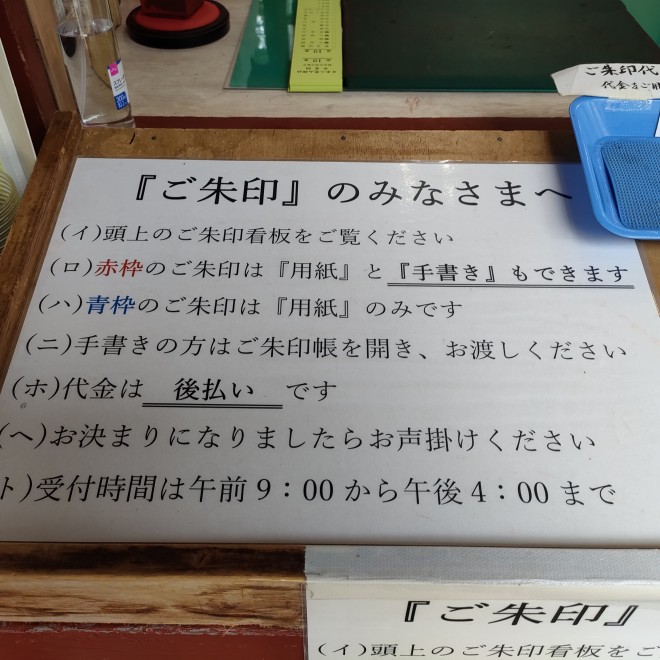 ご朱印代
代金をご
『ご朱印』のみなさまへ
(イ)頭上のご朱印看板をご覧ください
(ロ)赤枠のご朱印は『用紙』と『手書き』もできます
(ハ)青枠のご朱印は『用紙』のみです
(ニ)手書きの方はご朱印帳を開き、お渡しください
(ホ)代金は 後払い です
(ヘ)お決まりになりましたらお声掛けください
ト)受付時間は午前9：00から午後4：00まで
『ご朱印』
(イ)頭上のご朱印看板をご